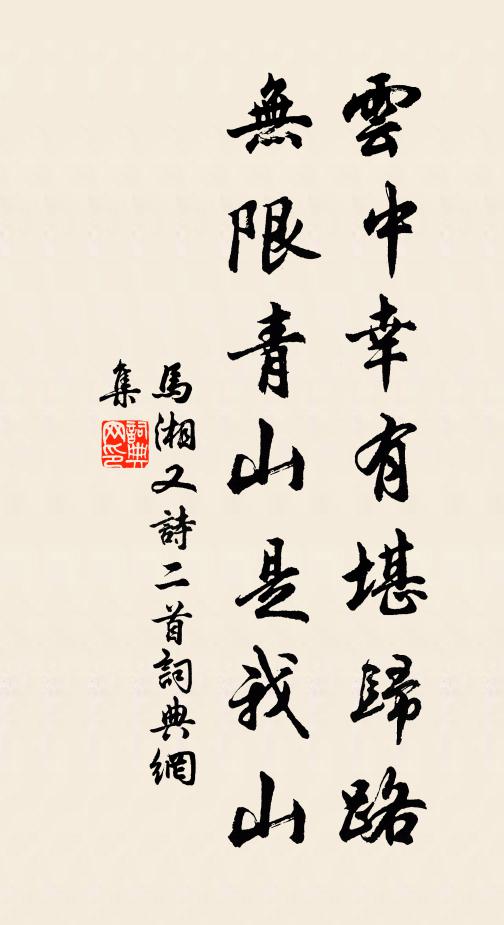 雲中幸有堪歸路
無限青山是我山
馬湘又詩二首詞典網
集
詞典網印